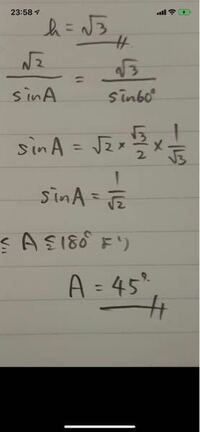 23:58
h = √3
√2/sinA = √3/sin60°
sinA = √2 × √3/2 × 1/√3
sinA = 1/√2
≦ A ≦ 180° より
A = 45°